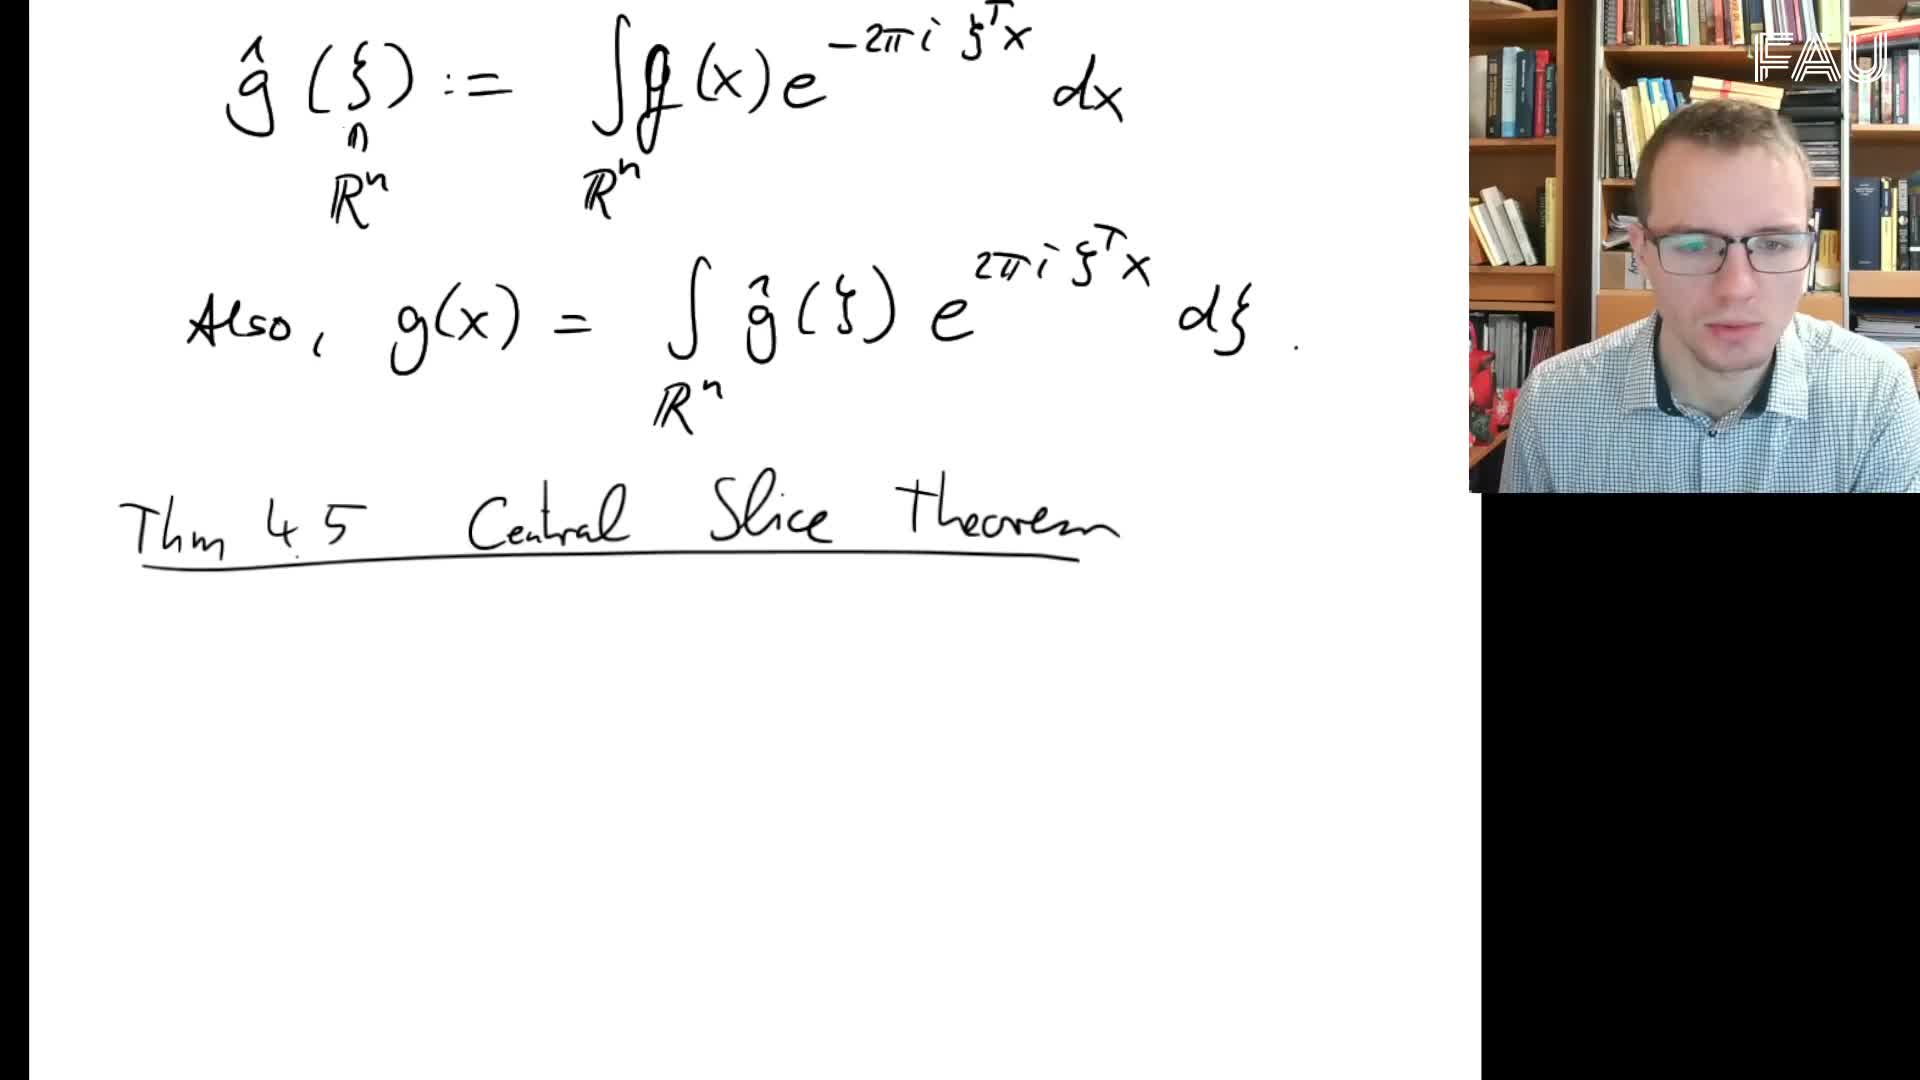 ĝ(ξ) := ∫g(x)e^{-2πi ξ^T x} dx
∩
ℝⁿ ℝⁿ
Also, g(x) = ∫ ĝ(ξ) e^{2πi ξ^T x} dξ .
ℝⁿ
Thm 4.5 Central Slice Theorem
FAU